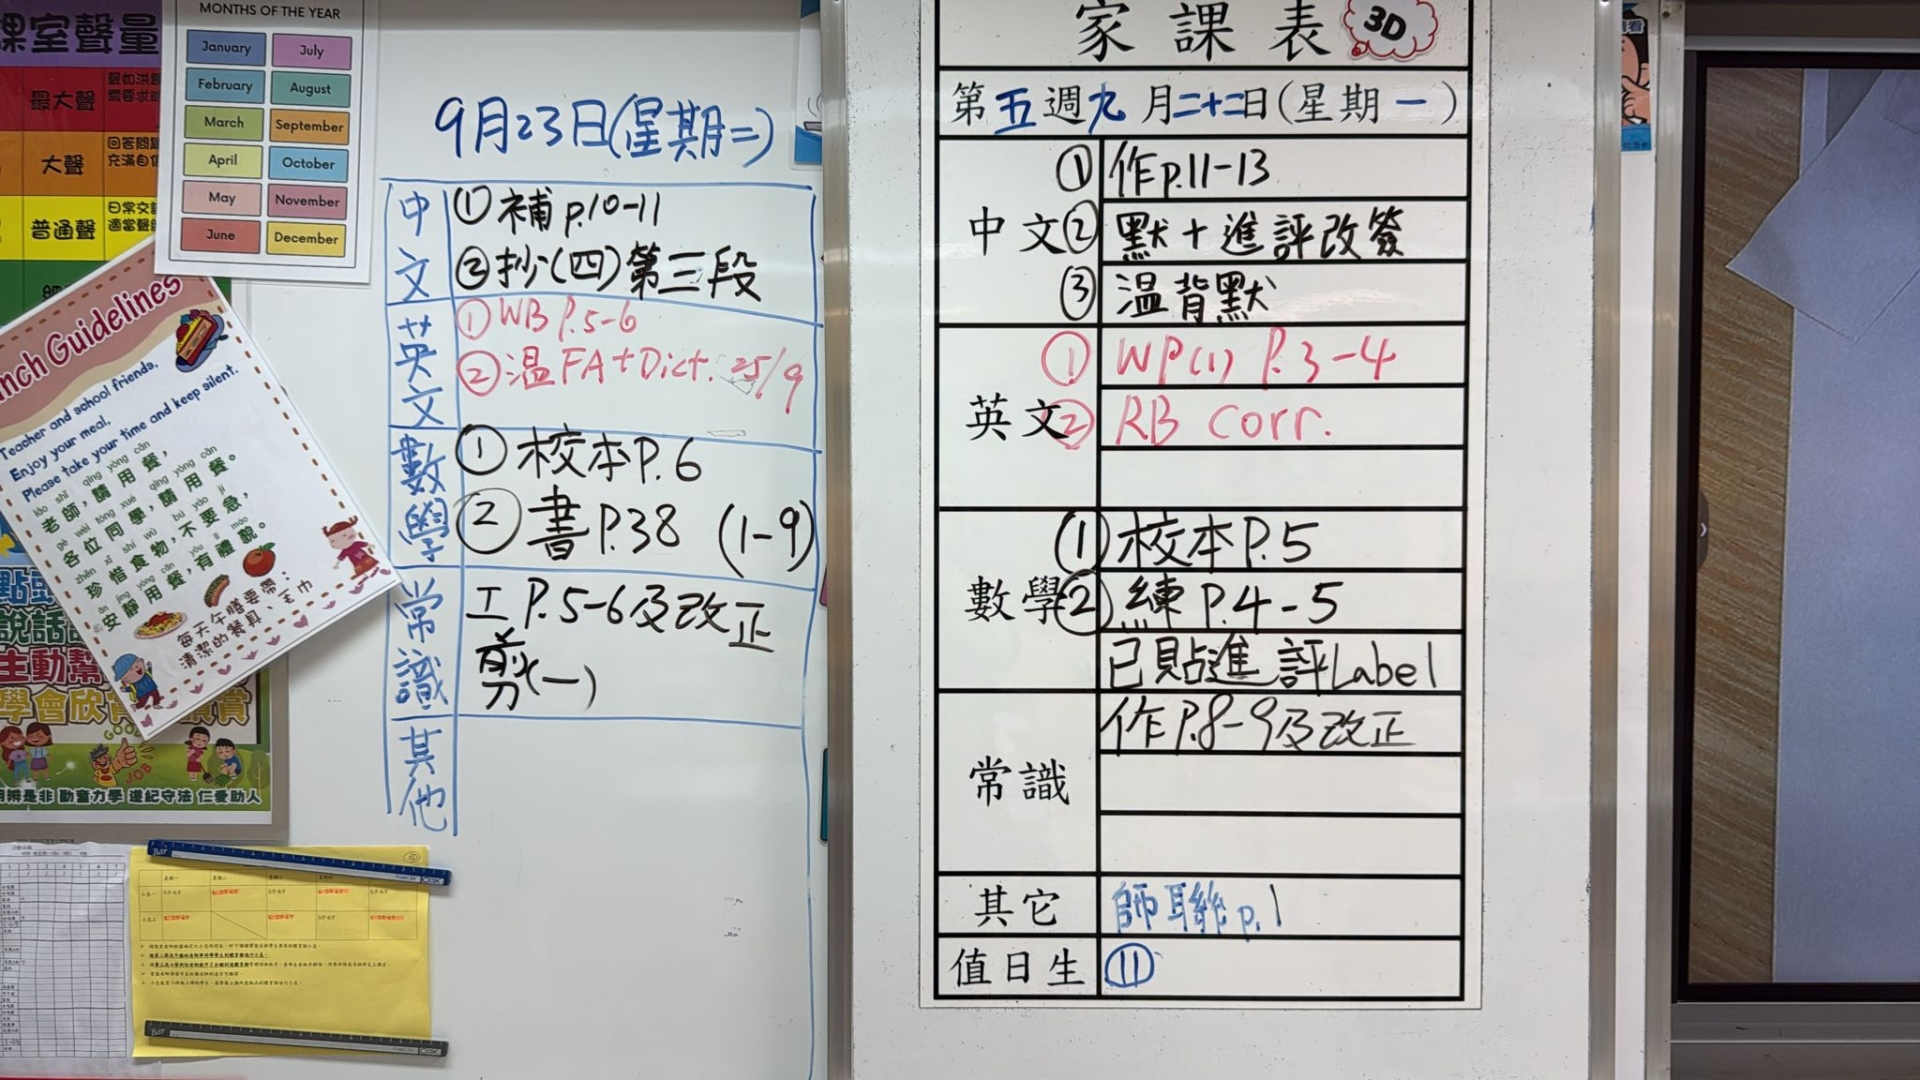 課室聲量
最大聲
大聲
回答問題
普通聲
日常交
MONTHS OF THE YEAR
January
July
February
August
March
September
April
October
May
November
June
December
nch Guidelines
Teacher and school friends,
Enjoy your meal,
Please take your time and keep silent.
lǎo shī qǐng yòng cān
老師,請用餐,
gè wèi tóng xué qǐng yòng cān
各位同學,請用餐。
zhēn xī shí wù bú yào jí
珍惜食物,不要急,
ān jìng yòng cān yǒu lǐ mào
安靜用餐,有禮貌。
每天午膳要帶:
清潔的餐具、毛巾
說話
主動幫
學會欣賞
GOOD
JOB
明辨是非 勤奮力學 遵紀守法 仁愛助人
9月23日(星期二)
中文
①補p.10-11
②抄(四)第三段
英文
①WB P.5-6
②溫FA+Dict. 25/9
數學
①校本P.6
②書P.38 (1-9)
常識
工P.5-6及改正
剪(一)
其他
家課表
3D
第五週九月二十二日(星期一)
中文
①作p.11-13
②默+進評改簽
③溫背默
英文
①WP(1) P.3-4
②RB corr.
數學
①校本P.5
②練P.4-5
已貼進評Label
常識
作P.8-9及改正
其它
師聯p.1
值日生
⑪